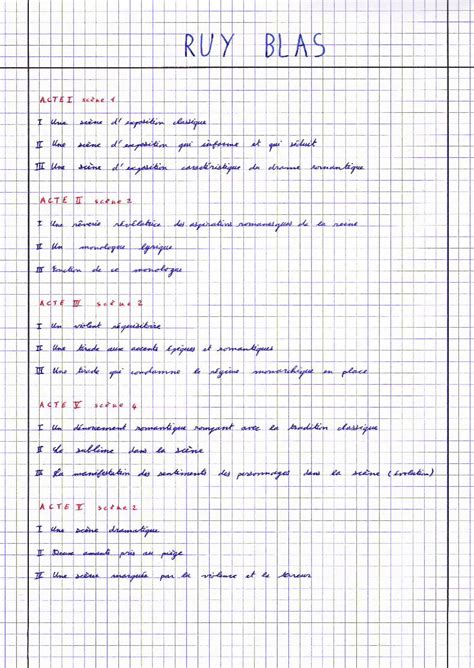 RUY BLAS
ACTE I scène 1
I Une scène d'exposition classique
II Une scène d'exposition qui informe et qui séduit
III Une scène d'exposition caractéristique du drame romantique
ACTE II scène 2
I Une rêverie révélatrice des aspirations romanesques de la reine
II Un monologue lyrique
III Fonction de ce monologue
ACTE III scène 2
I Un violent réquisitoire
II Une tirade aux accents épiques et romantiques
III Une tirade qui condamne le régime monarchique en place
ACTE V scène 4
I Un dénouement romantique rompant avec la tradition classique
II Le sublime dans la scène
III La manifestation des sentiments des personnages dans la scène (évolution)
ACTE V scène 2
I Une scène dramatique
II Deux amants pris au piège
III Une scène marquée par la violence et la terreur